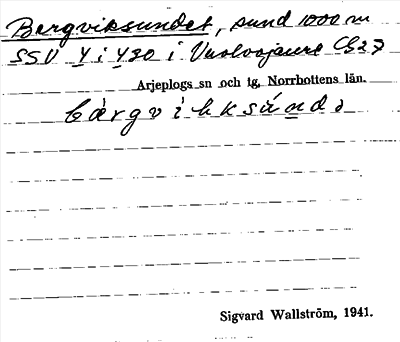 Bergviksundet, sund 1000 m
SSV Y i Y30 i Vuolvojaure C627
Arjeplogs sn och tg, Norrbottens län.
bärgvikksúnd
Sigvard Wallström, 1941.